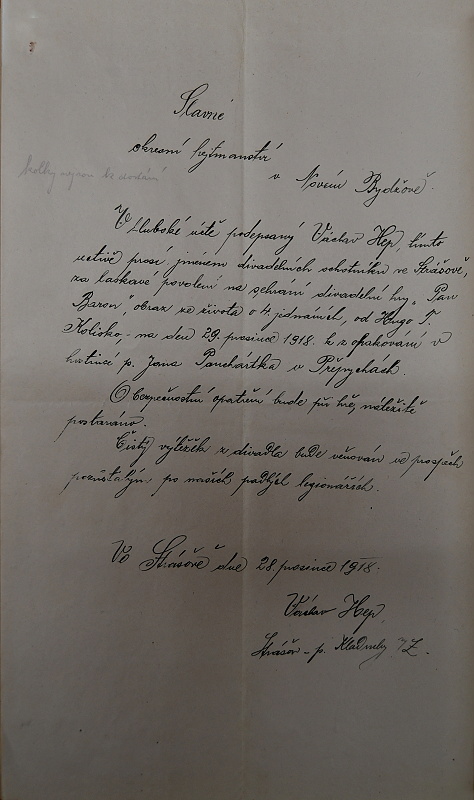 Slavné
okresní hejtmanství
v Novém Bydžově.
V hluboké úctě podepsaný Václav Hep, tímto
uctivě prosí, jménem divadelních ochotníků ve Strašově,
za laskavé povolení na sehrání divadelní hry „Pan
Baron", obraz ze života o 4. jednáních, od Hugo F.
Kolisko, - na den 29. prosince 1918. k z opakování v
hostinci p. Jana Panchártka v Přepychách.
O bezpečnostní opatření bude při hře, náležitě
postaráno.
Čistý výtěžek z divadla bude věnován ve prospěch
pozůstalým po našich padlých legionářích.
Ve Strašově dne 28. prosince 1918.
Václav Hep,
Strašov - p. Kladruby